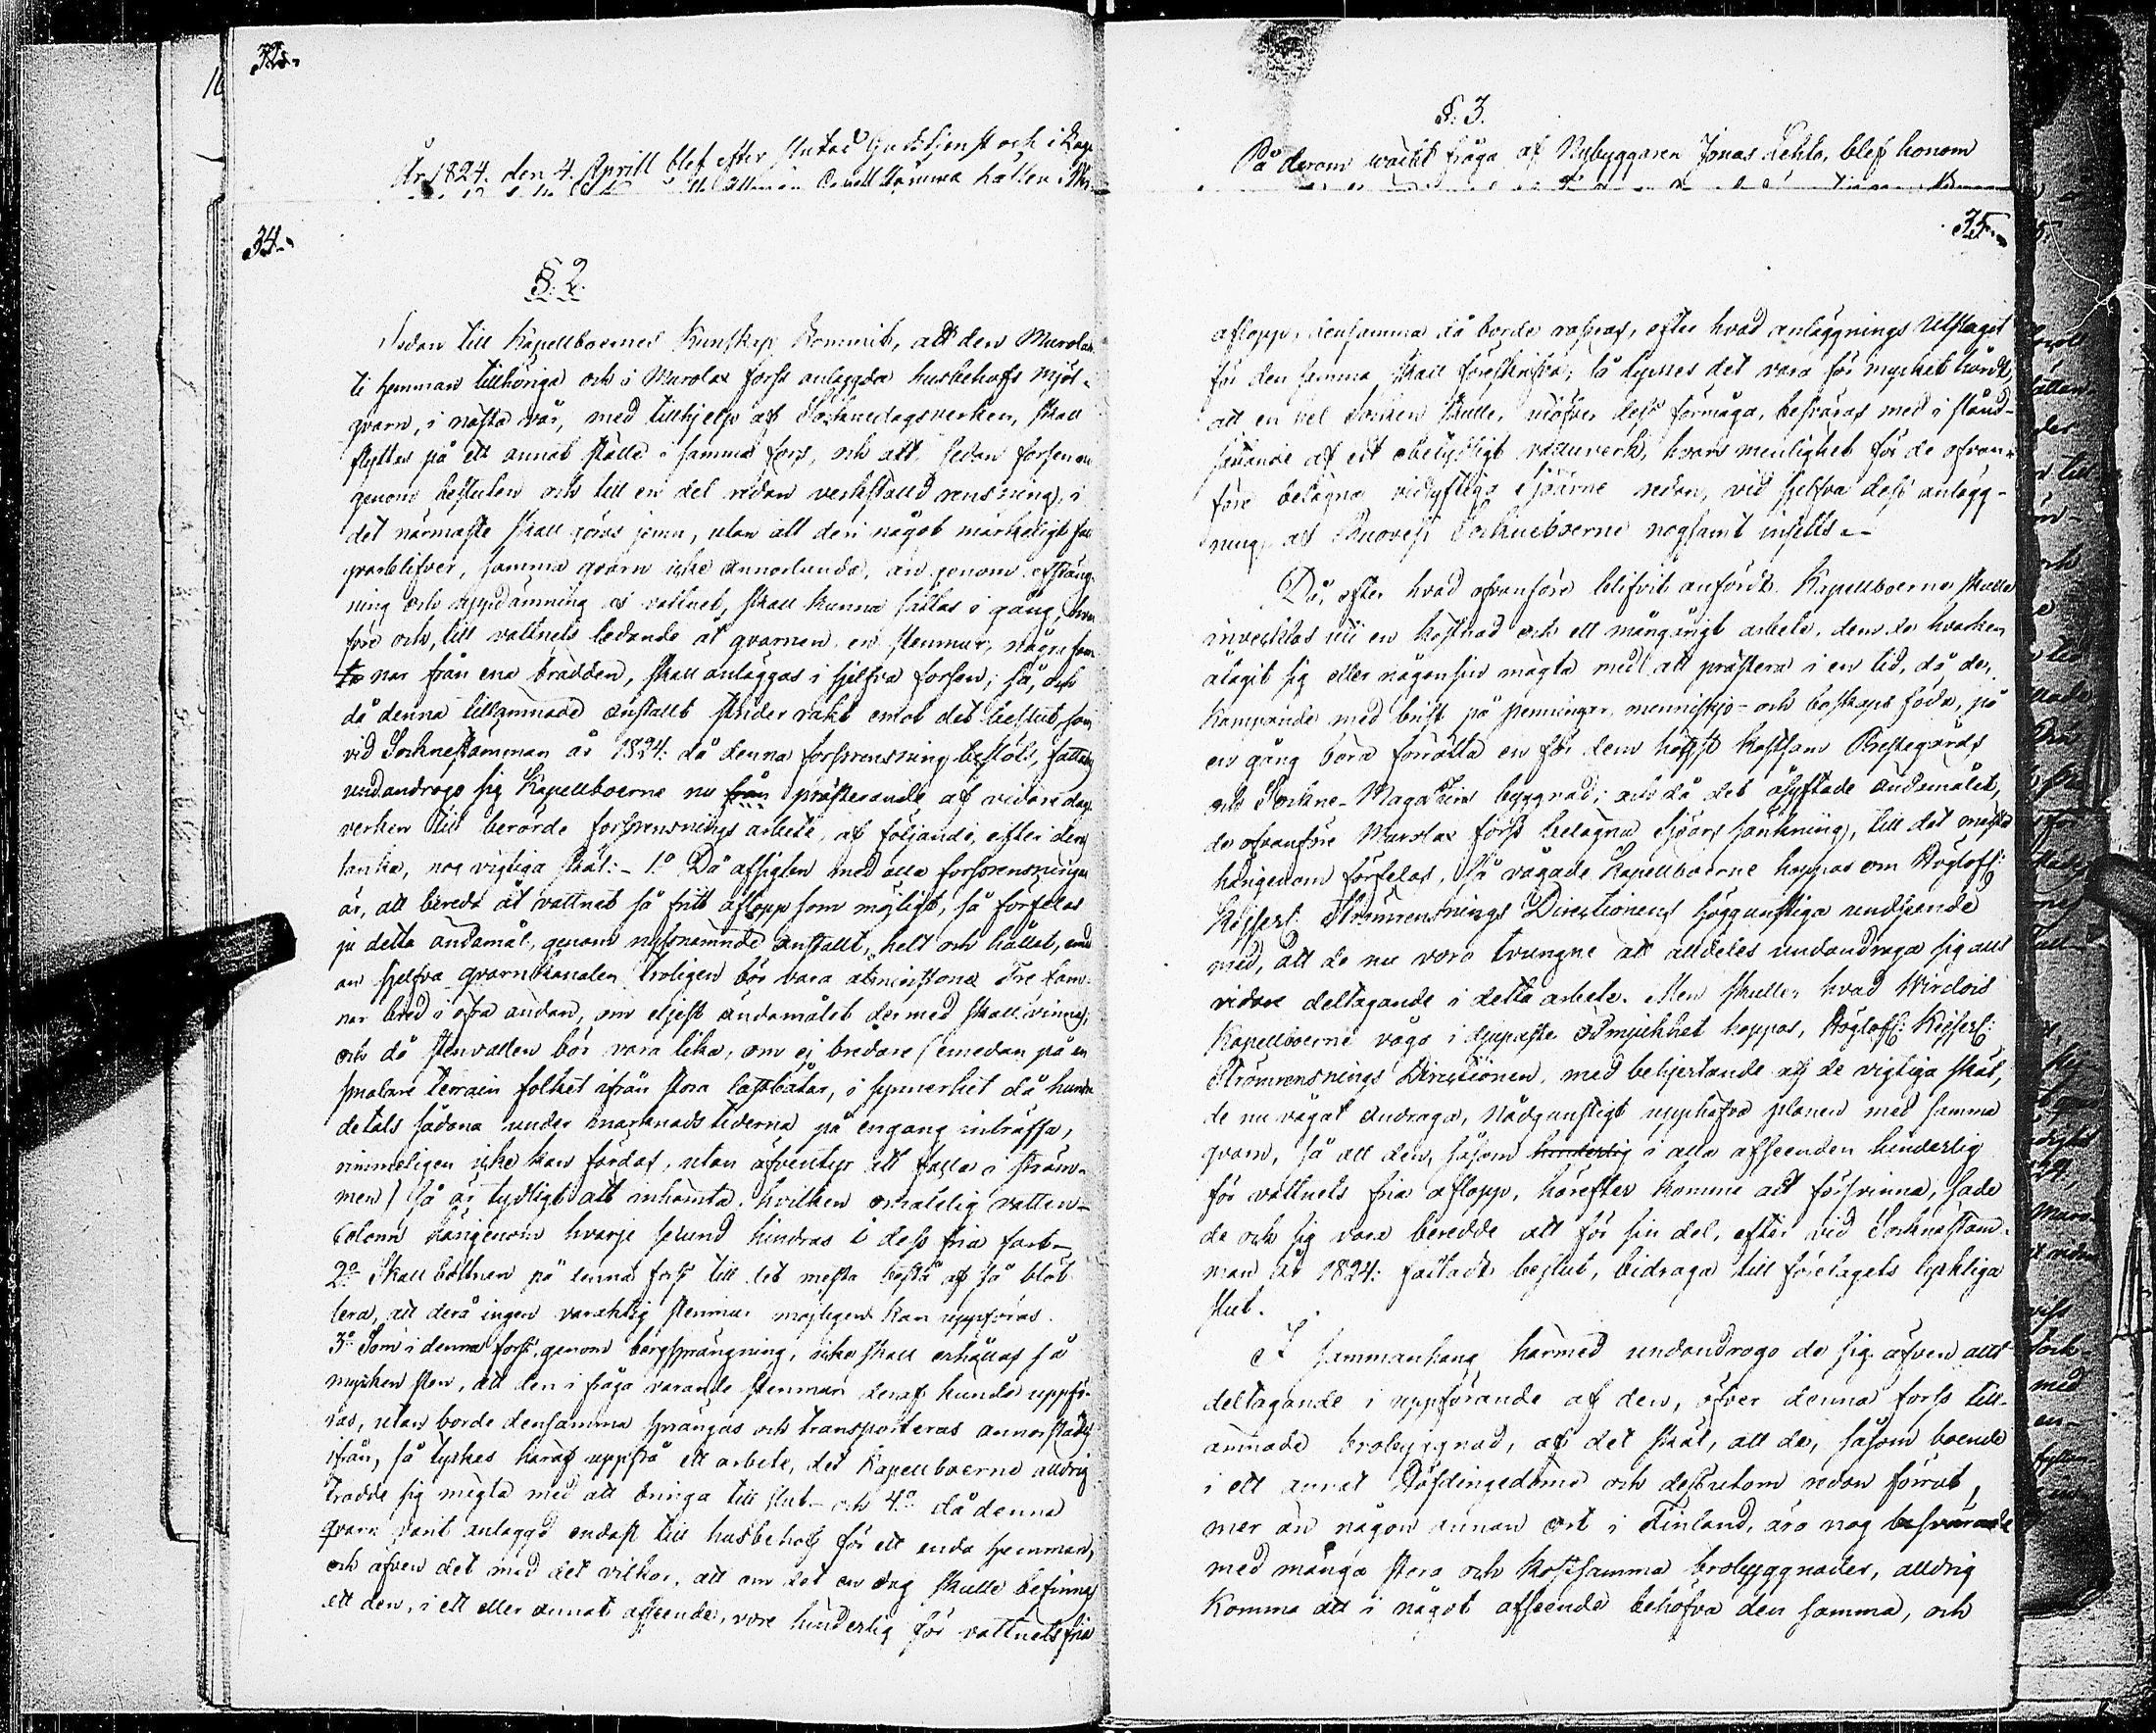 32.
År 1824. den 4. Aprill blef efter slutad Gudstjenst och i
34.
§. 2.
Sedan till Kapellboernes Kunskap kommit, att den Murolax
ti hemman tillhöriga och i Murolax forss anlaggda husbehofs mjöl-
qvarn, i nästa vår, med tillhjelp af Socknedagsverken, skall
flyttas på ett annat ställe i samma forss, och att sedan forssen nu
genom besluten och till en del redan verkställd rensning, i
det närmaste skall göras jemn, utan att deri något märkeligt fall
qvarblifver, samma qvarn icke annorlunda, än genom afstäng-
ning och uppdämning af vattnet, skall kunna sättas i gång,
före och, till vattnets ledande åt qvarnen, en stenmur, några fam
nar från ena brädden, skall anläggas i sjelfva forsen; så, och
då denna tillämnade anstallt strider rakt emot det beslut, som
vid Sockneståmman år 1824: då denna forssrensning beslöts, fattades
undandrogo sig Kapellboerne nu från presterande af vidare dags
verken till berörde forssrensnings arbete, af följande, efter deras
tanka, nog vigtiga skäl: - 1:o Då afsigten med alla forssrensningar
är, att bereda åt vattnet så fritt aflopp som möjligt, så förfelas
ju detta ändamål, genom nyssnämnde anstallt, helt och hållet, eme
an sjelfva qvarnkanalen troligen bör vara åtminstone Tre fam-
nar bred i öfra ändan, om eljest ändamålet dermed skall vinnas,
och då stenvallen bör vara lika, om ej bredare (emedan på en
smalare terrain folket ifrån stora lassbåtar, i synnerhet då hundra
detals sådana under marknadstiderna på engång inträffa,
rimmeligen icke kan fördas, utan äfventyr att falla i ström-
men) så är tydligt att inhämta, hvilken omätelig vatten-
Colonn härigenom hvarje secund hindras i dess fria fart-
2:o Skall bottnen på denna forss till det mesta bestå af så blöt
lera, att derå ingen varaktig stenmur möjligen kan uppföras.
3:o Som i denna forss, genom bergsprängning, icke skall erhållas så
mycken sten, att den i fråga varande stenmur deraf kunde uppfö-
ras, utan borde densamma sprängas och transporteras annorstädes
ifrån, så tyckes häraf uppstå ett arbete, det Kapellboerne alldrig
trodde sig mägta med att bringa till slut - och 4:o då denna
qvarn varit anlaggd endast till husbehof för ett enda hemman,
och äfven det med det vilkor, att om det en dag skulle befinnas
att den, i ett eller annat afseende, vore hinderlig för vattnets fria
§. 3.
På derom väckt fråga af Nybyggaren Jonas Lehto, blef honom
35.
aflopp, densamma då borde raseras, efter hvad anläggnings Utslaget
för den samma skall föreskrifva; så synes det vara för mycket hårdt,
att en hel Socken skulle, utöfver dess förmåga, besväras med i stånd-
sättande af ett obetydligt vattuverk, hvars menlighet för de ofvan-
före belägna vidlyftiga Sjöarne redan, vid sjelfva dess anlägg-
ning, af Ruovesi Socknebоerne nogsamt insetts. -
Då, efter hvad ofvanföre blifvit anfördt Kapellboerne skulle
invecklas uti en kostnad och ett mångårigt arbete, dem de hvarken
åtagit sig eller någonsin mägta med att prästera i en tid, då de,
kämpande med brist på penningar, menniskjo- och boskaps föda, på
en gång böra förrätta en för dem högst kostsam Prestegårds
och Sockne-Magazins byggnad; och då det åsyftade ändamålet,
de ofvanföre Murolax forss belägna Sjöars sänkning, till det mesta
härigenom förfelas, så vågade Kapellboerne hoppas om Höglofl:
Kejserl: Strömrensnings Directionens höggunstiga undseende
med, att de nu voro tvungne att alldeles undandraga sig allt
vidare deltagande i detta arbete. Men skulle, hvad Wirdois
Kapellboerne våga i djupaste ödmjukhet hoppas, Höglofl: Kejserl:
Strömrensnings Directionen, med behjertande af de vigtiga skäl,
de nu vågat andraga, Nådgunstigt upphäfva planen med samma
qvarn, så att den, såsom hinderlig i alla afseenden hinderlig
för vattnets fria aflopp, härefter komme att försvinna, sade
de och sig vara beredde att för sin del, efter vid Socknestäm-
man år 1824: fattadt beslut, bidraga till företagets lyckliga
slut.
I sammanhang härmed undandrogo de sig äfven allt
deltagande i uppförande af den, öfver denna forss till-
ämnade brobyggnad, af det skäl, att de, såsom boende
i ett annat Höfdingedöme och dessutom redan förut,
mer än någon annan ort i Finland, äro nog besvärade
med många stora och kostsamma brobyggnader, alldrig
komma att i något afseende behöfva den samma, och